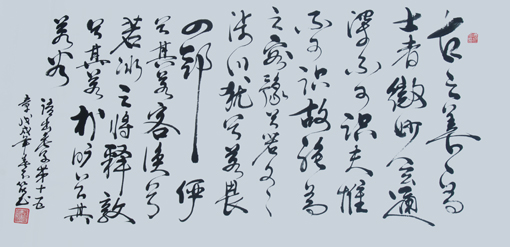 古之善為
士者微妙玄通
深不可識夫惟
不可識故強為
之容豫兮若冬
涉川猶兮若畏
四鄰儼
兮其若客渙兮
若冰之將釋敦
兮其若朴曠兮其
若谷
語出老子第十五
章戊戌